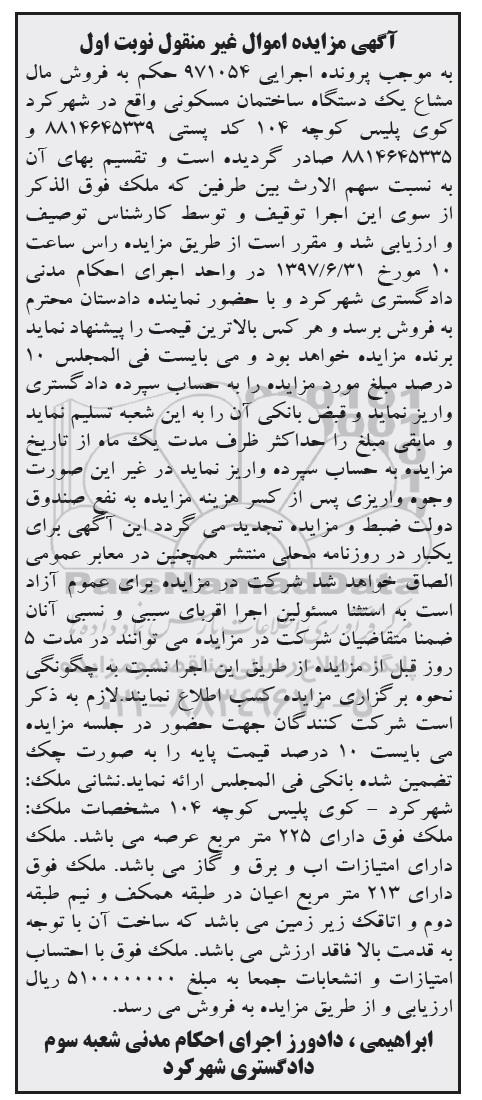 آگهی مزایده اموال غیر منقول نوبت اول
به موجب پرونده اجرایی ۹۷۱۰۵۴ حکم به فروش مال
مشاع یک دستگاه ساختمان مسکونی واقع در شهرکرد
کوی پلیس کوچه ۱۰۴ کد پستی ۸۸۱۴۶۴۵۳۳۹ و
۸۸۱۴۶۴۵۳۳۵ صادر گردیده است و تقسیم بهای آن
به نسبت سهم الارث بین طرفین که ملک فوق الذکر
از سوی این اجرا توقیف و توسط کارشناس توصیف
و ارزیابی شد و مقرر است از طریق مزایده راس ساعت
۱۰ مورخ ۱۳۹۷/۶/۳۱ در واحد اجرای احکام مدنی
دادگستری شهرکرد و با حضور نماینده دادستان محترم
به فروش برسد و هر کس بالاترین قیمت را پیشنهاد نماید
برنده مزایده خواهد بود و می بایست فی المجلس ۱۰
درصد مبلغ مورد مزایده را به حساب سپرده دادگستری
واریز نماید و قبض بانکی آن را به این شعبه تسلیم نماید
و مابقی مبلغ را حداکثر ظرف مدت یک ماه از تاریخ
مزایده به حساب سپرده واریز نماید در غیر این صورت
وجوه واریزی پس از کسر هزینه مزایده به نفع صندوق
دولت ضبط و مزایده تجدید می گردد این آگهی برای
یکبار در روزنامه محلی منتشر همچنین در معابر عمومی
الصاق خواهد شد شرکت در مزایده برای عموم آزاد
است به استثنا مسئولین اجرا اقربای سببی و نسبی آنان
ضمنا متقاضیان شرکت در مزایده می توانند در مدت ۵
روز قبل از مزایده از طریق این اجرا نسبت به چگونگی
نحوه برگزاری مزایده کسب اطلاع نمایند.لازم به ذکر
است شرکت کنندگان جهت حضور در جلسه مزایده
می بایست ۱۰ درصد قیمت پایه را به صورت چک
تضمین شده بانکی فی المجلس ارائه نماید.نشانی ملک:
شهرکرد - کوی پلیس کوچه ۱۰۴ مشخصات ملک:
ملک فوق دارای ۲۲۵ متر مربع عرصه می باشد. ملک
دارای امتیازات اب و برق و گاز می باشد. ملک فوق
دارای ۲۱۳ متر مربع اعیان در طبقه همکف و نیم طبقه
دوم و اتاقک زیر زمین می باشد که ساخت آن با توجه
به قدمت بالا فاقد ارزش می باشد. ملک فوق با احتساب
امتیازات و انشعابات جمعا به مبلغ ۵۱۰۰۰۰۰۰۰۰ ریال
ارزیابی و از طریق مزایده به فروش می رسد.
ابراهیمی ، دادورز اجرای احکام مدنی شعبه سوم
دادگستری شهرکرد
ParsNamadData